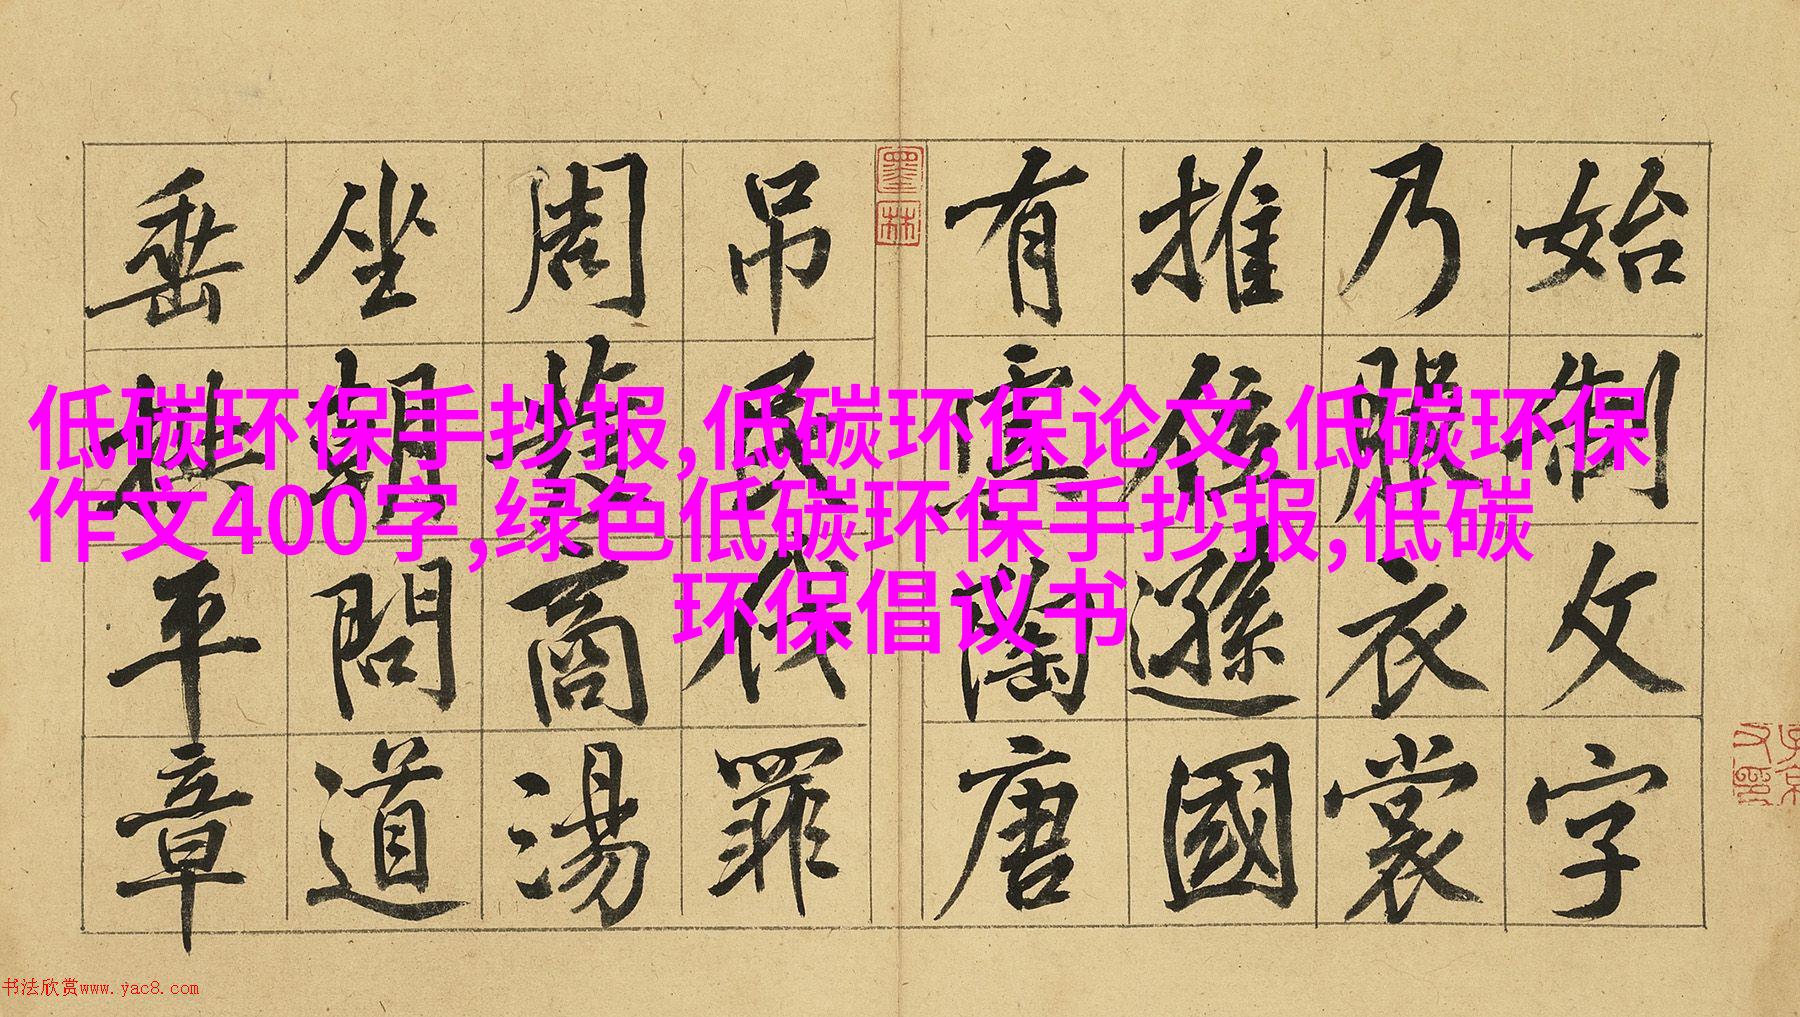 低碳环保手抄报,低碳环保论文,低碳环保
作文400字,绿色低碳环保手抄报,低碳
环保倡议书
始制文字
乃服衣裳
推位遜國
有虞陶唐
吊民伐罪
周發商湯
坐朝問道
垂拱平章
墨林
书法欣赏www.yac8.com